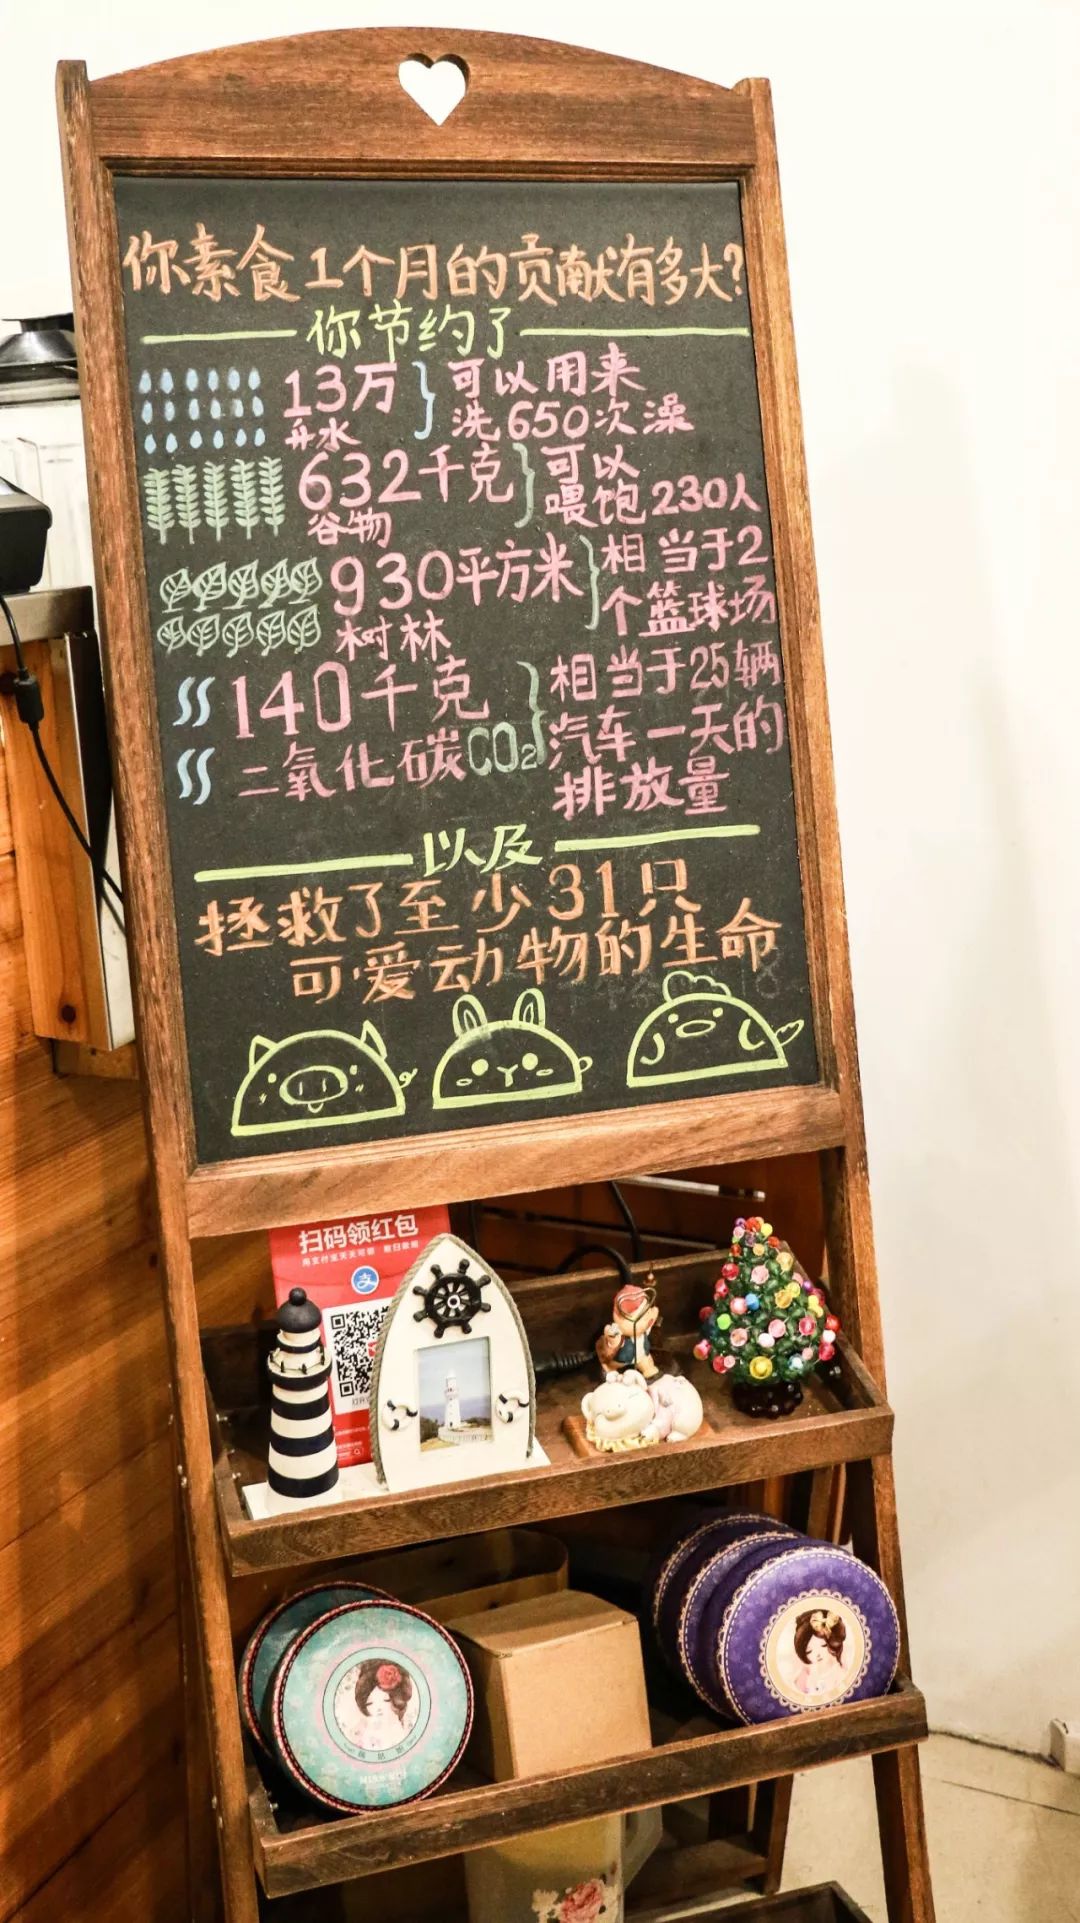 你素食1个月的贡献有多大?
你节约了
13万
升水
可以用来
洗650次澡
632千克
谷物
可以
喂饱230人
930平方米
树林
相当于2
个篮球场
140千克
二氧化碳CO₂
相当于25辆
汽车一天的
排放量
以及
拯救了至少31只
可爱动物的生命
扫码领红包
支